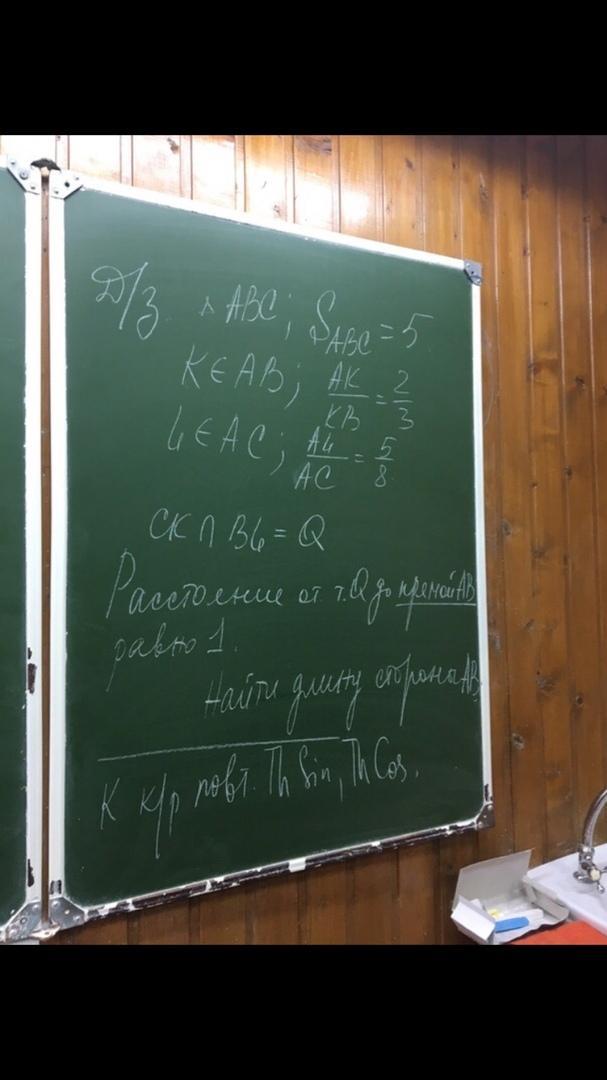 Д/З △ ABC; S_ABC = 5
K∈AB; AK/KB = 2/3
L∈AC; AL/AC = 5/8
CK∩BL = Q
Расстояние от т. Q до прямой AB
равно 1.
Найти длину стороны AB
К к/р повт. Th Sin, Th Cos.